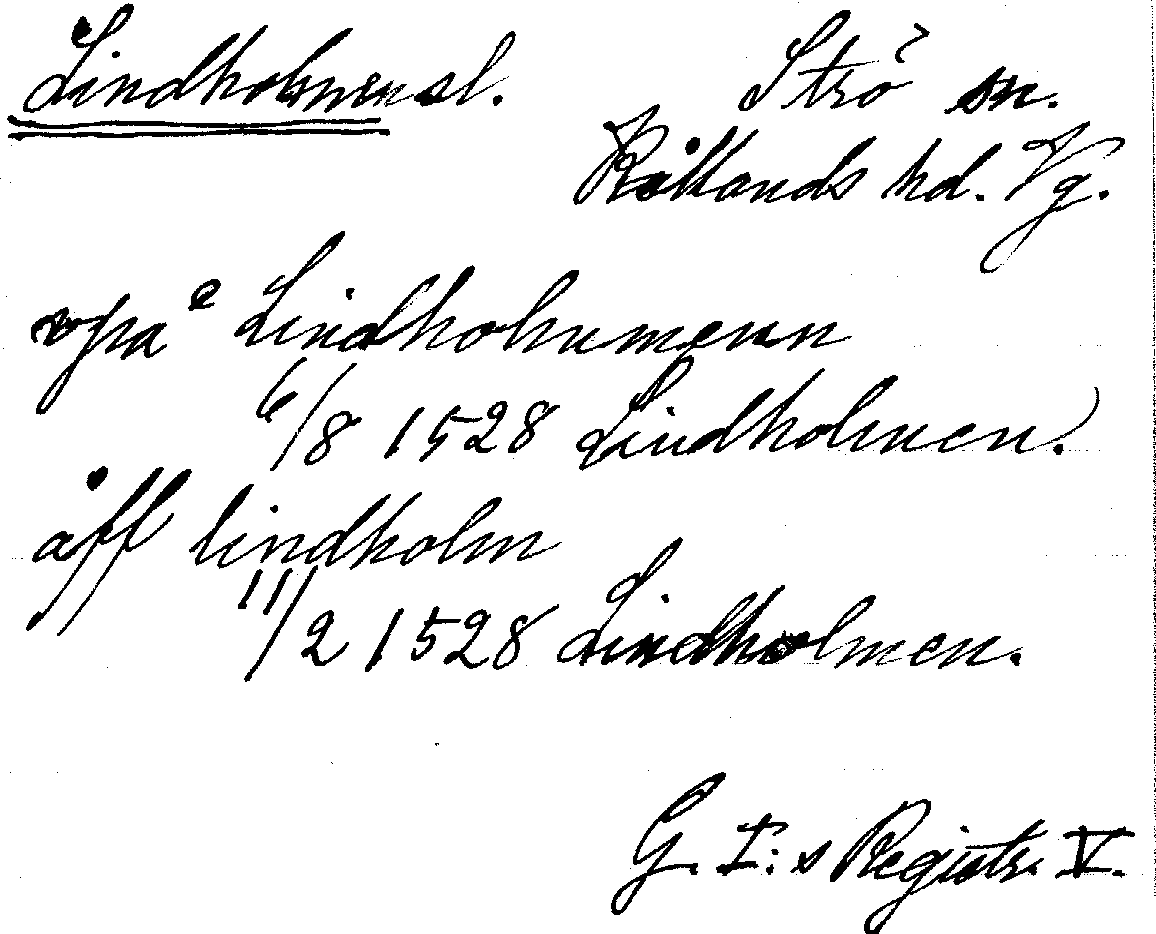 Lindholmen sl. Strö sn.
Kållands hd. Vg.
vpaᵉ Lindholmmenn
6/8 1528 Lindholmen.
åff lindholm
11/2 1528 Lindholmen.
G. I:s Registr. V.